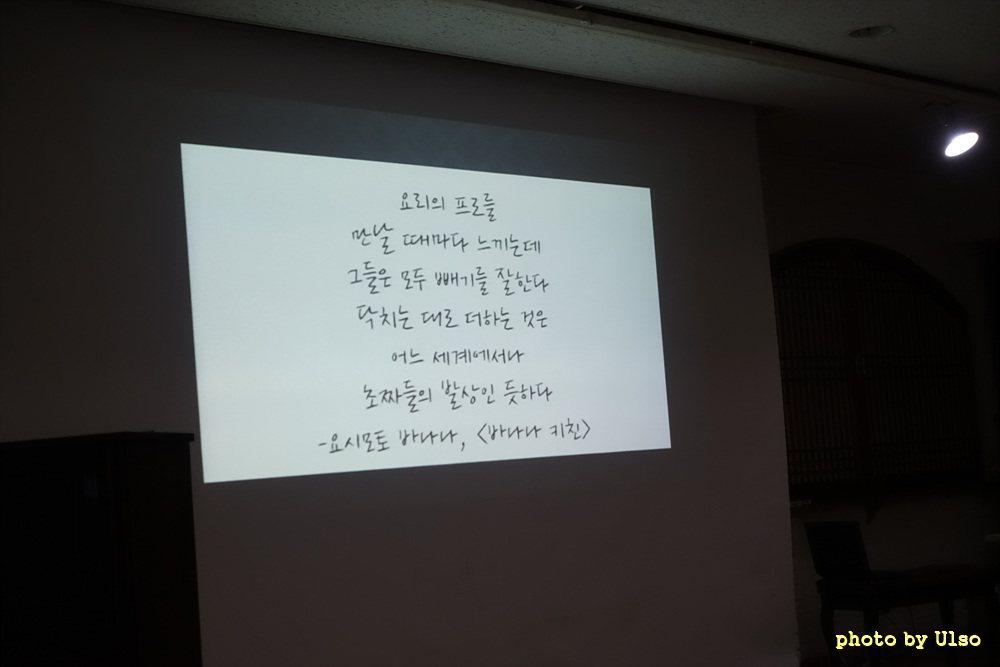 요리의 프로들
만날 때마다 느끼는데
그들은 모두 빼기를 잘한다
닥치는 대로 더하는 것은
어느 세계에서나
초짜들의 발상인 듯하다
-요시모토 바나나, <바나나 키친>
photo by Ulso